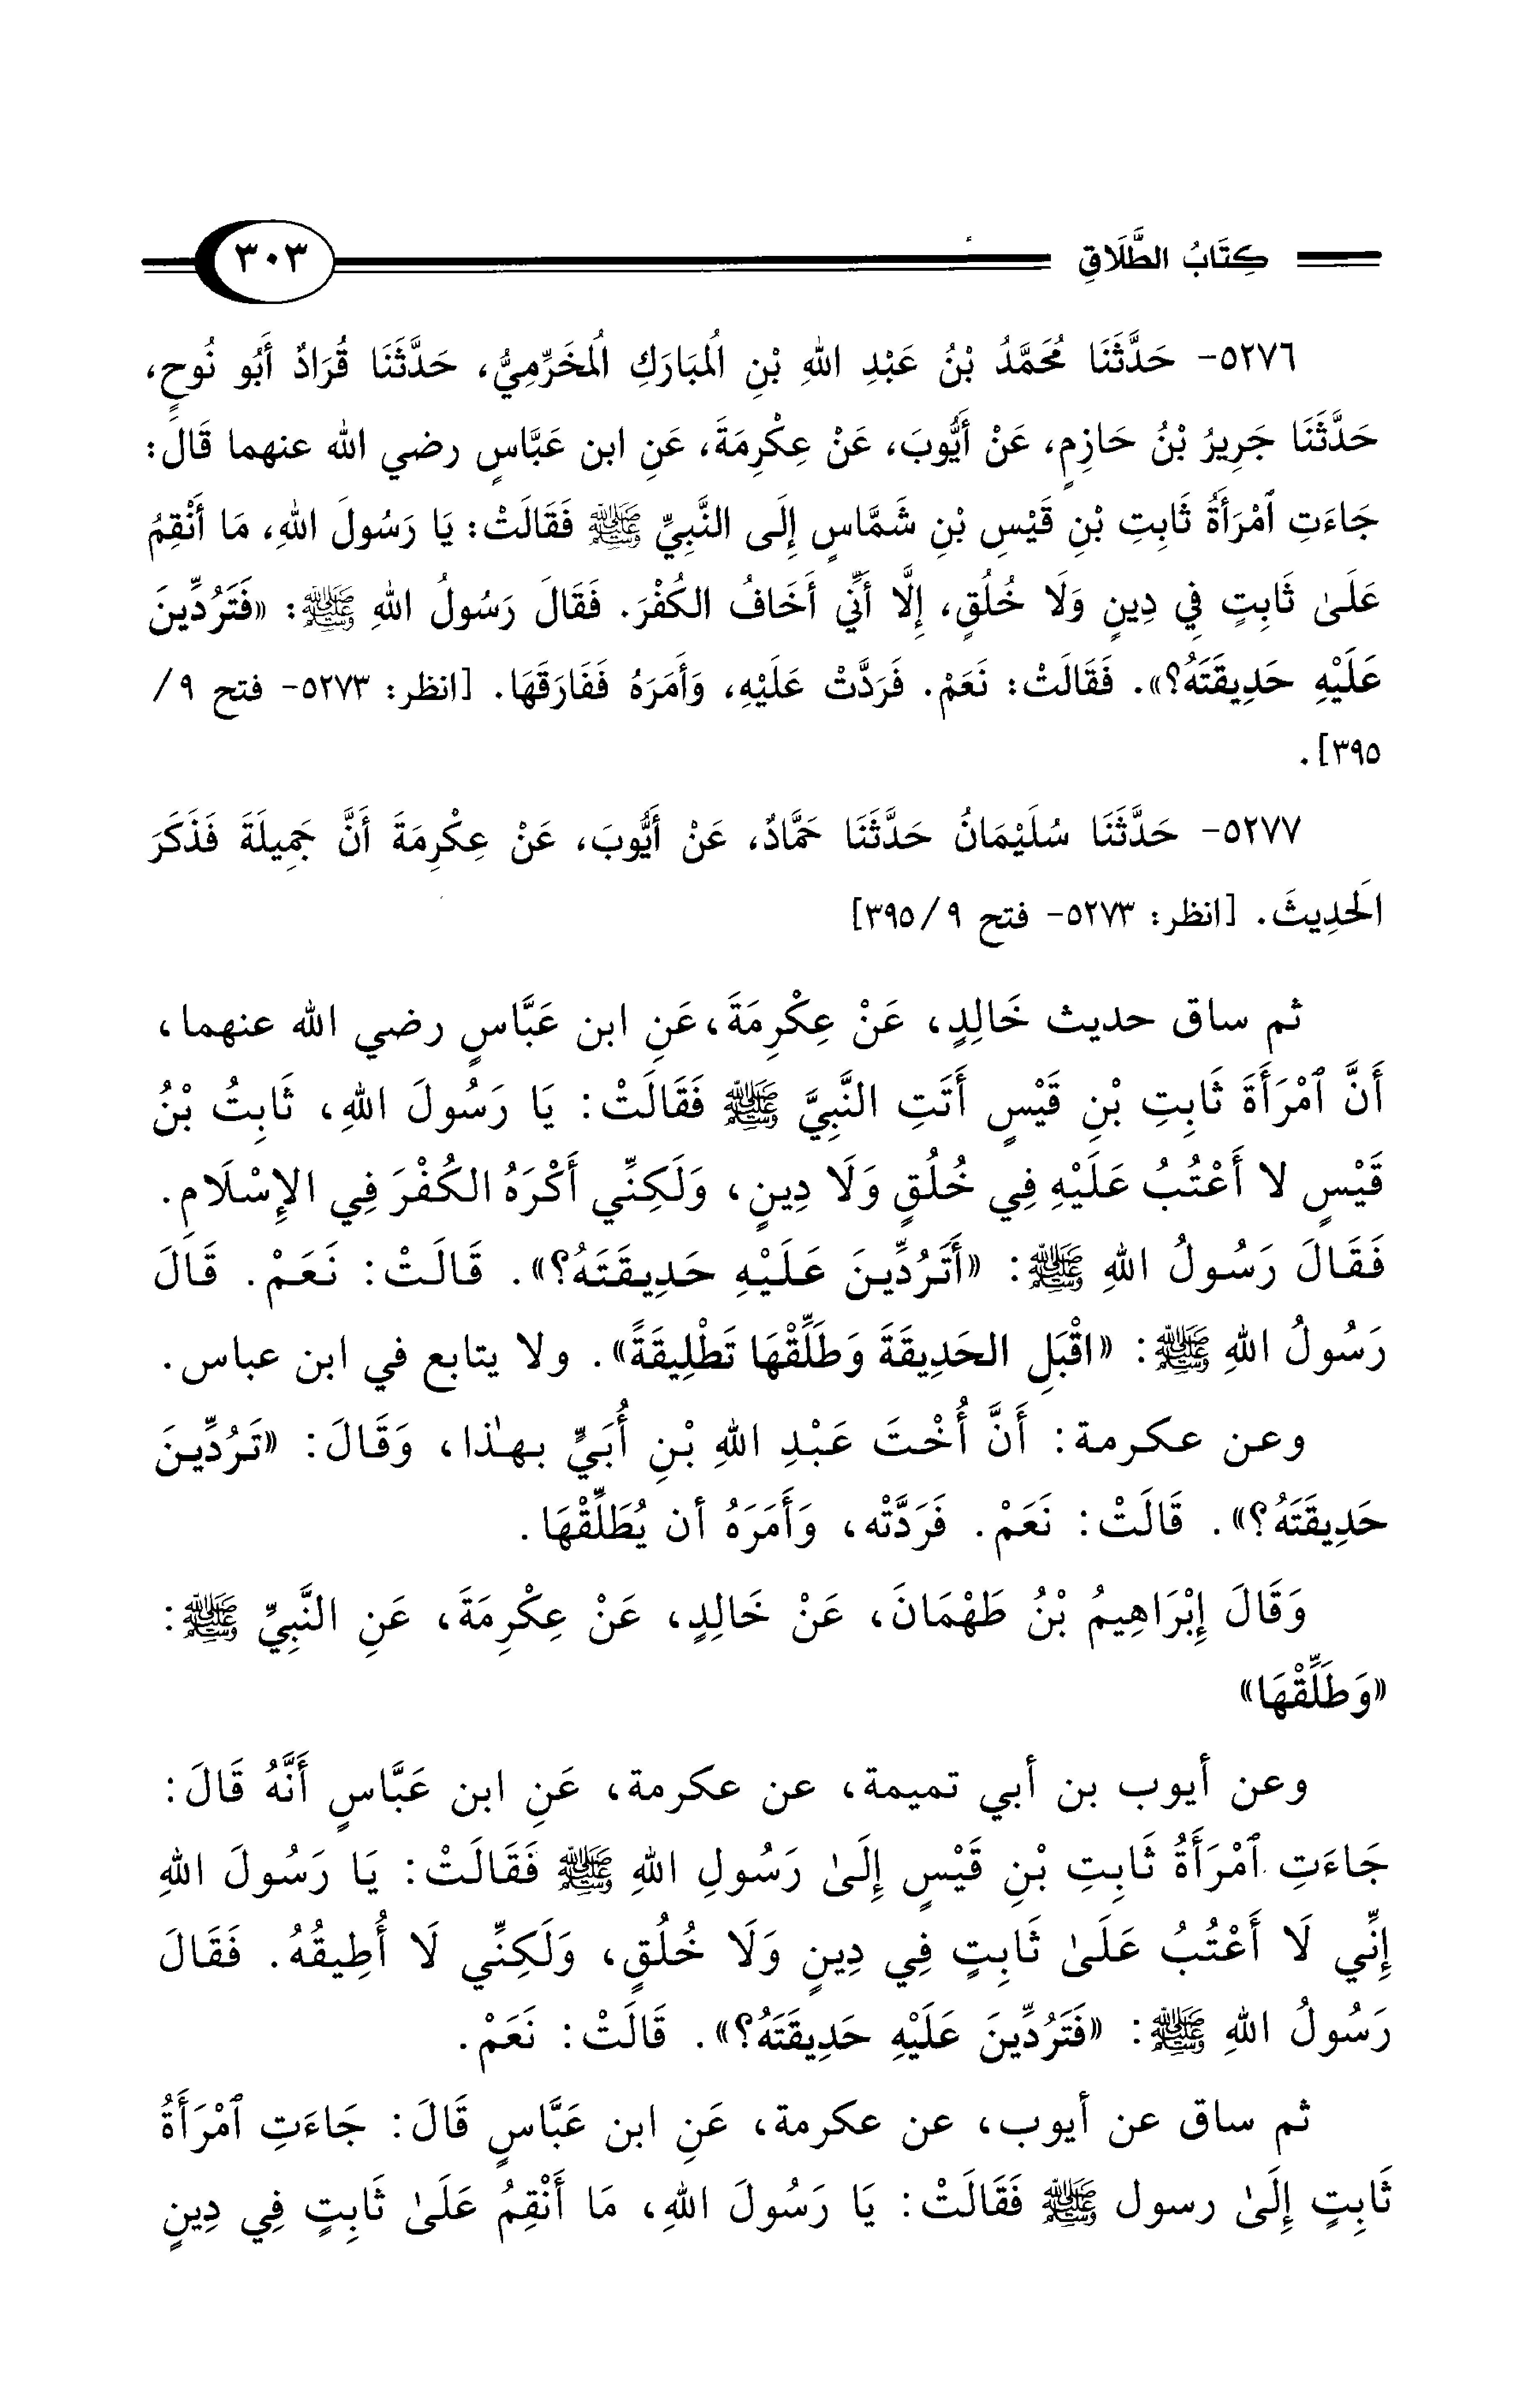 كِتَابُ الطَّلَاقِ ٣٠٣
٥٢٧٦- حَدَّثَنَا مُحَمَّدُ بْنُ عَبْدِ اللهِ بْنِ المُبَارَكِ المُخَرِّمِيُّ، حَدَّثَنَا قُرَادٌ أَبُو نُوحٍ،
حَدَّثَنَا جَرِيرُ بْنُ حَازِمٍ، عَنْ أَيُّوبَ، عَنْ عِكْرِمَةَ، عَنِ ابن عَبَّاسٍ رضي الله عنهما قَالَ:
جَاءَتِ ٱمْرَأَةُ ثَابِتِ بْنِ قَيْسِ بْنِ شَمَّاسٍ إِلَى النَّبِيِّ ﷺ فَقَالَتْ: يَا رَسُولَ اللهِ، مَا أَنْقِمُ
عَلَىٰ ثَابِتٍ فِي دِينٍ وَلَا خُلُقٍ، إِلَّا أَنِّي أَخَافُ الكُفْرَ. فَقَالَ رَسُولُ اللهِ ﷺ: «فَتَرُدِّينَ
عَلَيْهِ حَدِيقَتَهُ؟». فَقَالَتْ: نَعَمْ. فَرَدَّتْ عَلَيْهِ، وَأَمَرَهُ فَفَارَقَهَا. [انظر: ٥٢٧٣- فتح ٩/
٣٩٥].
٥٢٧٧- حَدَّثَنَا سُلَيْمَانُ حَدَّثَنَا حَمَّادٌ، عَنْ أَيُّوبَ، عَنْ عِكْرِمَةَ أَنَّ جَمِيلَةَ فَذَكَرَ
الَحدِيثَ. [انظر: ٥٢٧٣- فتح ٩/٣٩٥]
ثم ساق حديث خَالِدٍ، عَنْ عِكْرِمَةَ،عَنِ ابن عَبَّاسٍ رضي الله عنهما،
أَنَّ ٱمْرَأَةَ ثَابِتِ بْنِ قَيْسٍ أَتَتِ النَّبِيَّ ﷺ فَقَالَتْ: يَا رَسُولَ اللهِ، ثَابِتُ بْنُ
قَيْسٍ لا أَعْتُبُ عَلَيْهِ فِي خُلُقٍ وَلَا دِينٍ، وَلَكِنِّي أَكْرَهُ الكُفْرَ فِي الإِسْلَامِ.
فَقَالَ رَسُولُ اللهِ ﷺ: «أَتَرُدِّينَ عَلَيْهِ حَدِيقَتَهُ؟». قَالَتْ: نَعَمْ. قَالَ
رَسُولُ اللهِ ﷺ: «اقْبَلِ الحَدِيقَةَ وَطَلِّقْهَا تَطْلِيقَةً». ولا يتابع في ابن عباس.
وعن عكرمة: أَنَّ أُخْتَ عَبْدِ اللهِ بْنِ أُبَيٍّ بهٰذا، وَقَالَ: «تَرُدِّينَ
حَدِيقَتَهُ؟». قَالَتْ: نَعَمْ. فَرَدَّتْه، وَأَمَرَهُ أن يُطَلِّقْهَا.
وَقَالَ إِبْرَاهِيمُ بْنُ طَهْمَانَ، عَنْ خَالِدٍ، عَنْ عِكْرِمَةَ، عَنِ النَّبِيِّ ﷺ:
«وَطَلِّقْهَا»
وعن أيوب بن أبي تميمة، عن عكرمة، عَنِ ابن عَبَّاسٍ أَنَّهُ قَالَ:
جَاءَتِ ٱمْرَأَةُ ثَابِتِ بْنِ قَيْسٍ إِلَىٰ رَسُولِ اللهِ ﷺ فَقَالَتْ: يَا رَسُولَ اللهِ
إِنِّي لَا أَعْتُبُ عَلَىٰ ثَابِتٍ فِي دِينٍ وَلَا خُلُقٍ، وَلَكِنِّي لَا أُطِيقُهُ. فَقَالَ
رَسُولُ اللهِ ﷺ: «فَتَرُدِّينَ عَلَيْهِ حَدِيقَتَهُ؟». قَالَتْ: نَعَمْ.
ثم ساق عن أيوب، عن عكرمة، عَنِ ابن عَبَّاسٍ قَالَ: جَاءَتِ ٱمْرَأَةُ
ثَابِتٍ إِلَىٰ رسول ﷺ فَقَالَتْ: يَا رَسُولَ اللهِ، مَا أَنْقِمُ عَلَىٰ ثَابِتٍ فِي دِينٍ